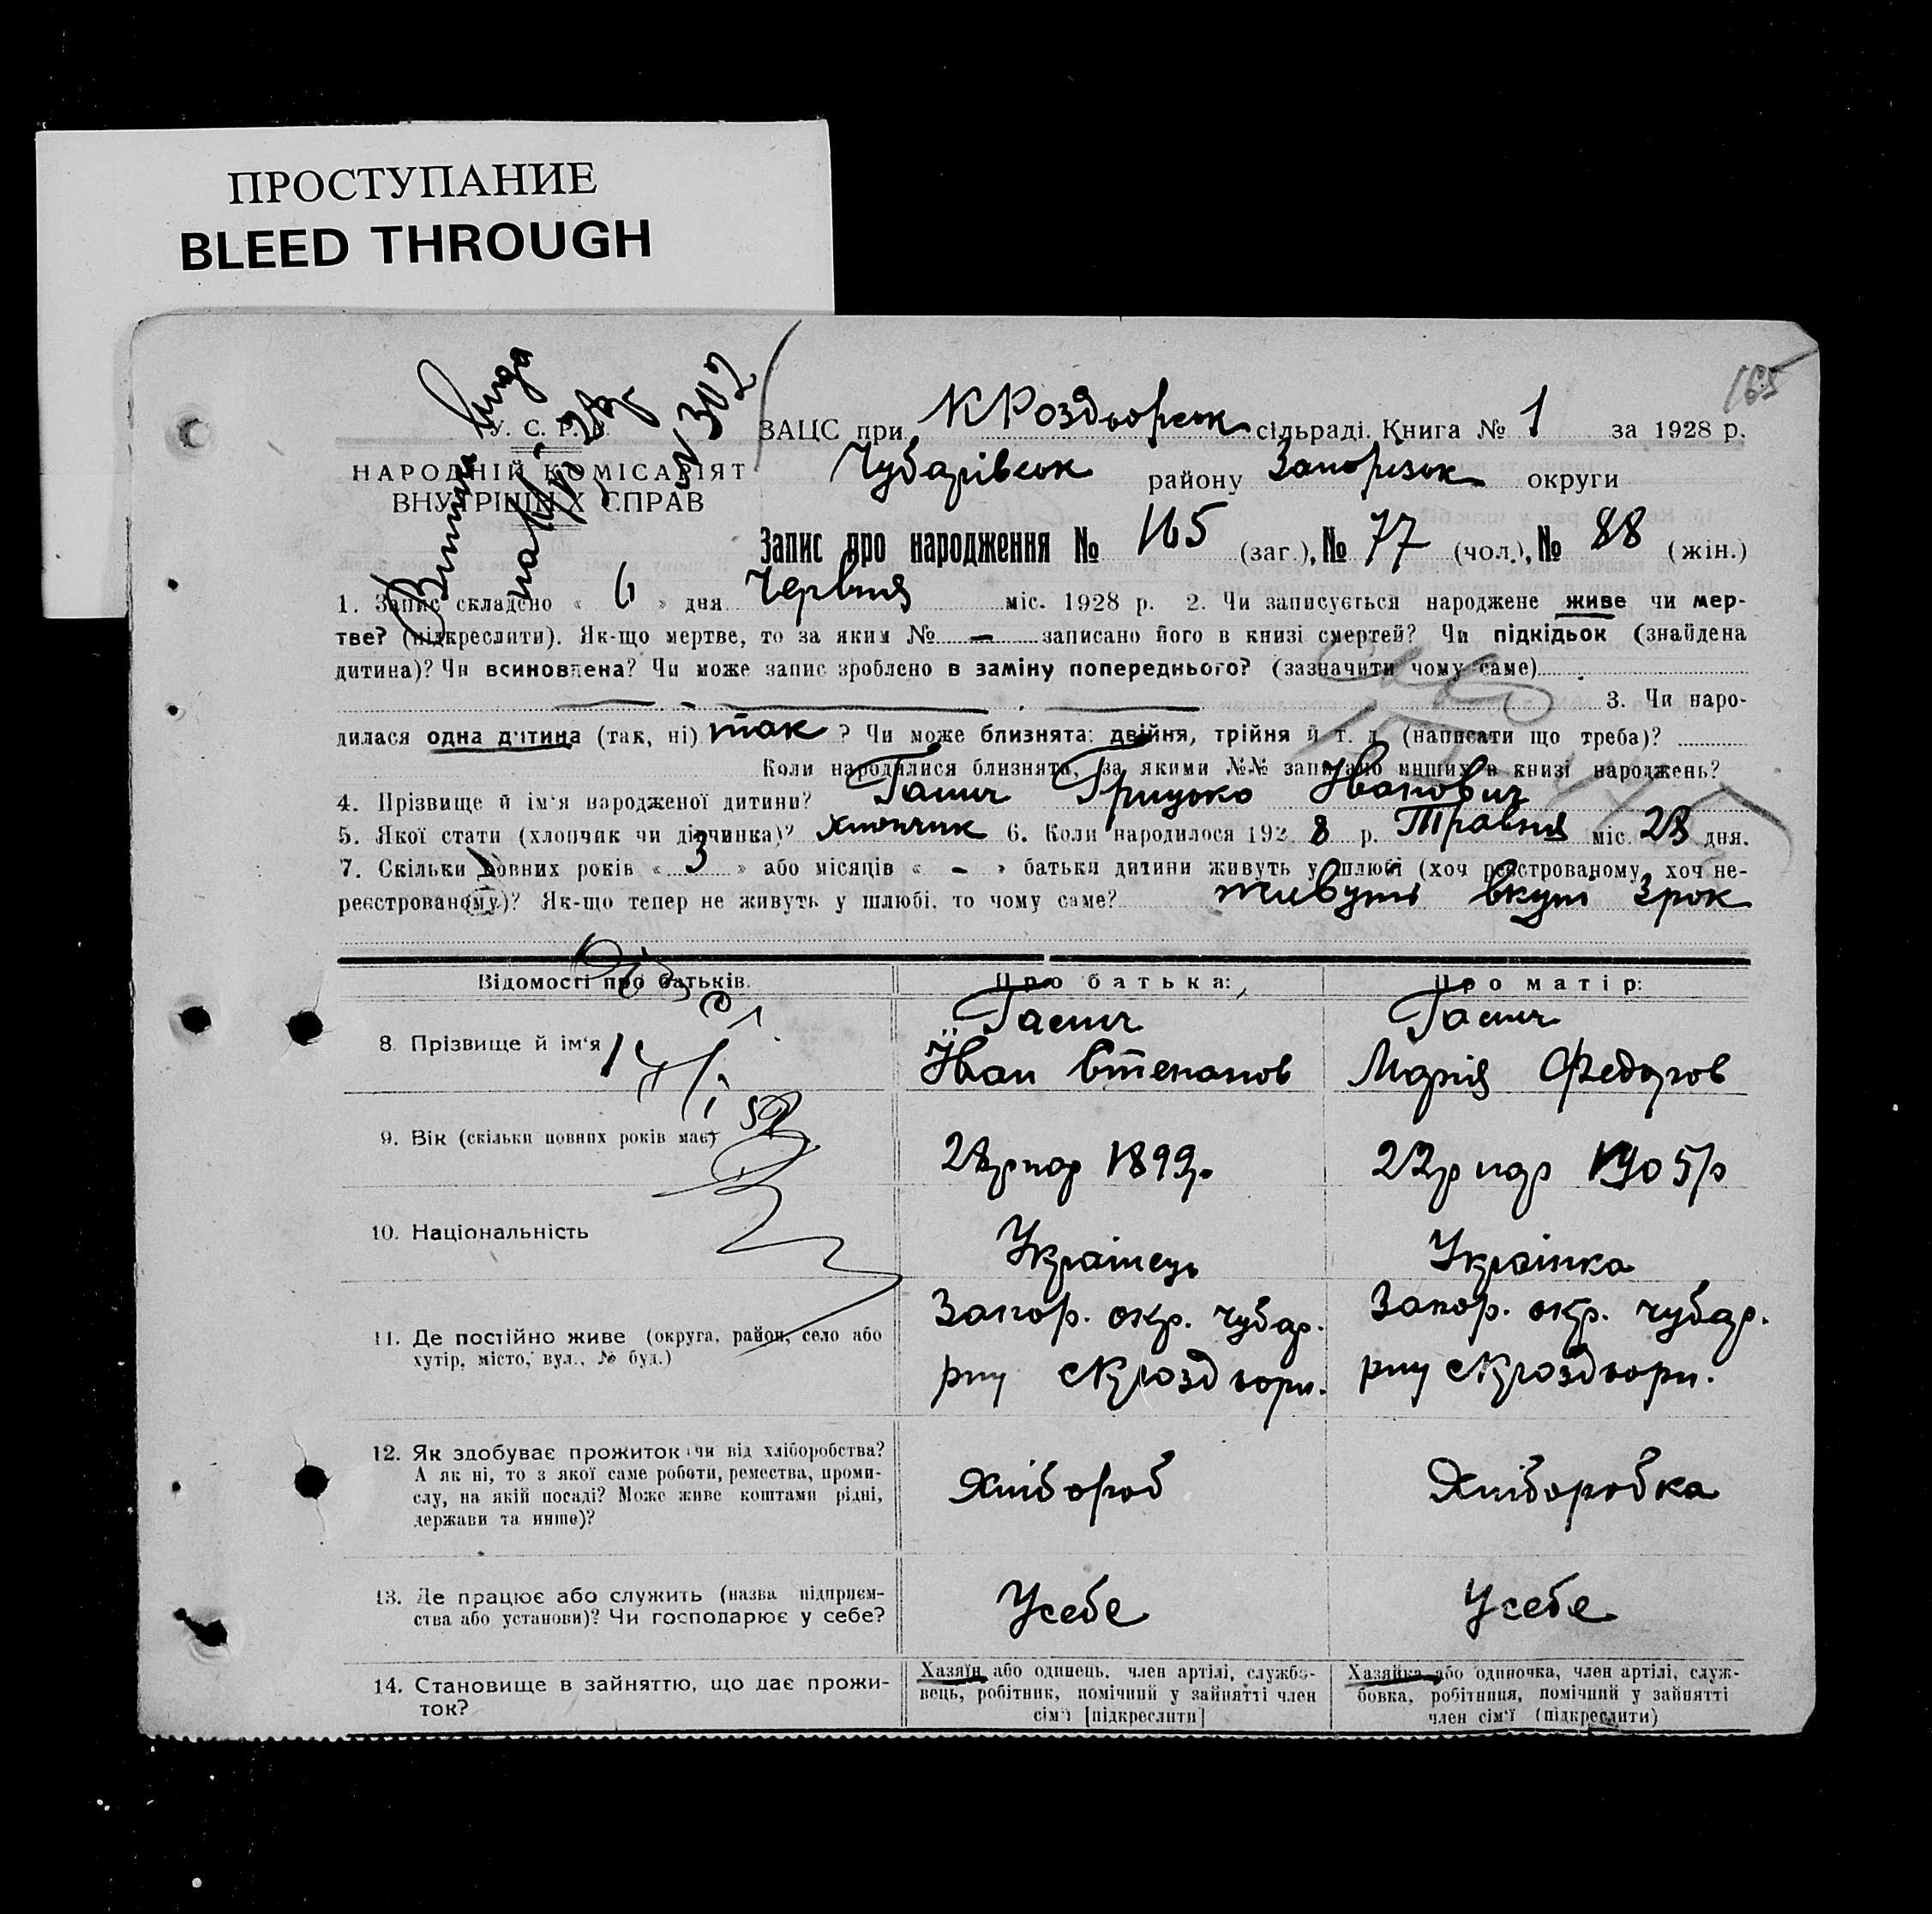 ПРОСТУПАНИЕ
BLEED THROUGH
165
У. С. Р. Р.
НАРОДНІЙ КОМІСАРІЯТ
ВНУТРІШНІХ СПРАВ
№ 302
ЗАЦС при К Роздорськ сільраді. Книга № 1 за 1928 р.
Чубарівськ району Запорізьк округи
Запис про народження № 165 (заг.), № 77 (чол.), № 88 (жін.)
1. Запис складено « 6 » дня Червня міс. 1928 р. 2. Чи записується народжене живе чи мер-
тве? (підкреслити). Як-що мертве, то за яким № — записано його в книзі смертей? Чи підкідьок (знайдена
дитина)? Чи всиновлена? Чи може запис зроблено в заміну попереднього? (зазначити чому саме)
3. Чи наро-
дилася одна дитина (так, ні) так ? Чи може близнята: двійня, трійня й т. д. (написати що треба)?
Коли народилися близнята, за якими №№ записано инших в книзі народжень?
4. Прізвище й ім'я народженої дитини? Грицько Іванович
5. Якої стати (хлопчик чи дівчинка)? хлопчик 6. Коли народилося 1928 р. Травня міс. 28 дня.
7. Скільки повних років « 3 » або місяців « - » батьки дитини живуть у шлюбі (хоч реєстрованому, хоч не-
реєстрованому)? Як-що тепер не живуть у шлюбі, то чому саме? живуть вкупі 3 рок
Відомості про батьків. Про батька: Про матір:
8. Прізвище й ім'я
Іван Степанов Марія Федоров
9. Вік (скільки повних років має)
28р нар 1899р. 22р нар 1905р
10. Національність Українець Українка
11. Де постійно живе (округа, район, село або
хутір, місто, вул., № буд.)
Запор. окр. чубар. Запор. окр. чубар.
12. Як здобуває прожиток (чи від хліборобства?
А як ні, то з якої саме роботи, ремества, проми-
слу, на якій посаді? Може живе коштами рідні,
держави та инше)?
Хлібороб Хліборобка
13. Де працює або служить (назва підприєм-
ства або установи)? Чи господарює у себе?
У себе У себе
14. Становище в зайняттю, що дає прожи-
ток?
Хазяїн або одинець, член артілі, службо-
вець, робітник, помічний у зайнятті член
сім'ї [підкреслити]
Хазяйка або одиночка, член артілі, служ-
бовка, робітниця, помічний у зайнятті
член сім'ї (підкреслити)